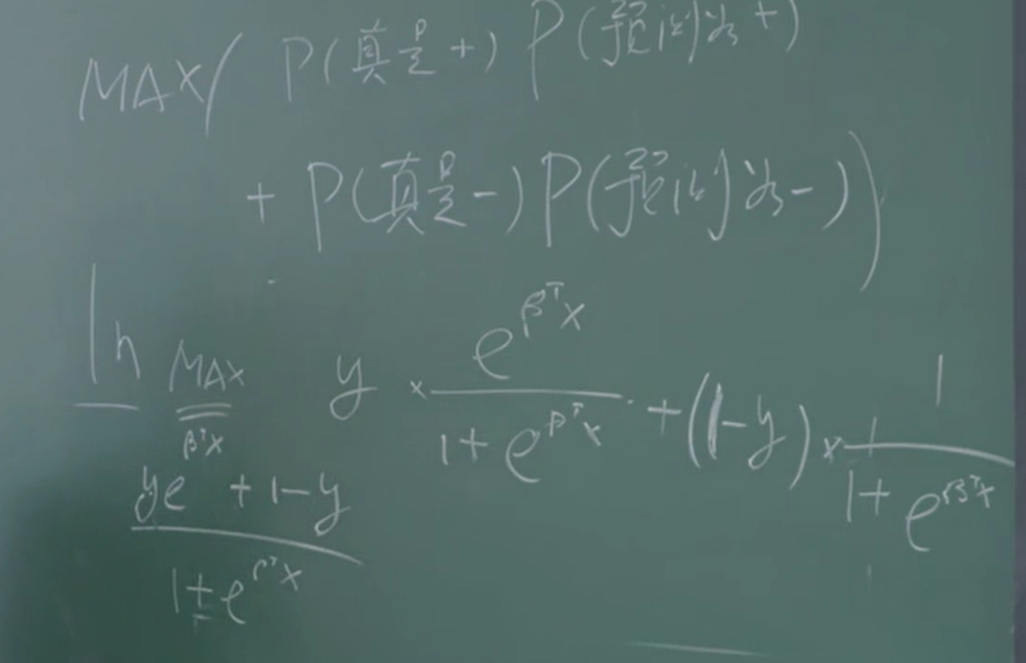 MAX( P(真是+) P(预测为+)
+ P(真是-) P(预测为-) )
ln MAX y × e^{β^T x} / (1 + e^{β^T x}) + (1-y) × 1 / (1 + e^{β^T x})
(y e^{β^T x} + 1 - y) / (1 + e^{β^T x})